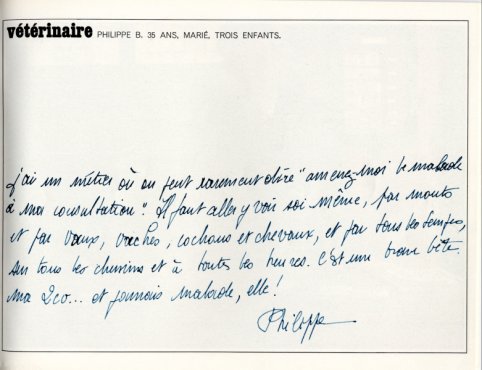 vétérinaire PHILIPPE B. 35 ANS, MARIÉ, TROIS ENFANTS.
j'ai un métier où on peut rarement dire "amenez-moi le malade
à ma consultation". Il faut aller y voir soi-même, par monts
et par vaux, vaches, cochons et chevaux, et par tous les temps,
sur tous les chemins et à toutes les heures. C'est une brave bête.
ma 2cv... et jamais malade, elle !
Philippe